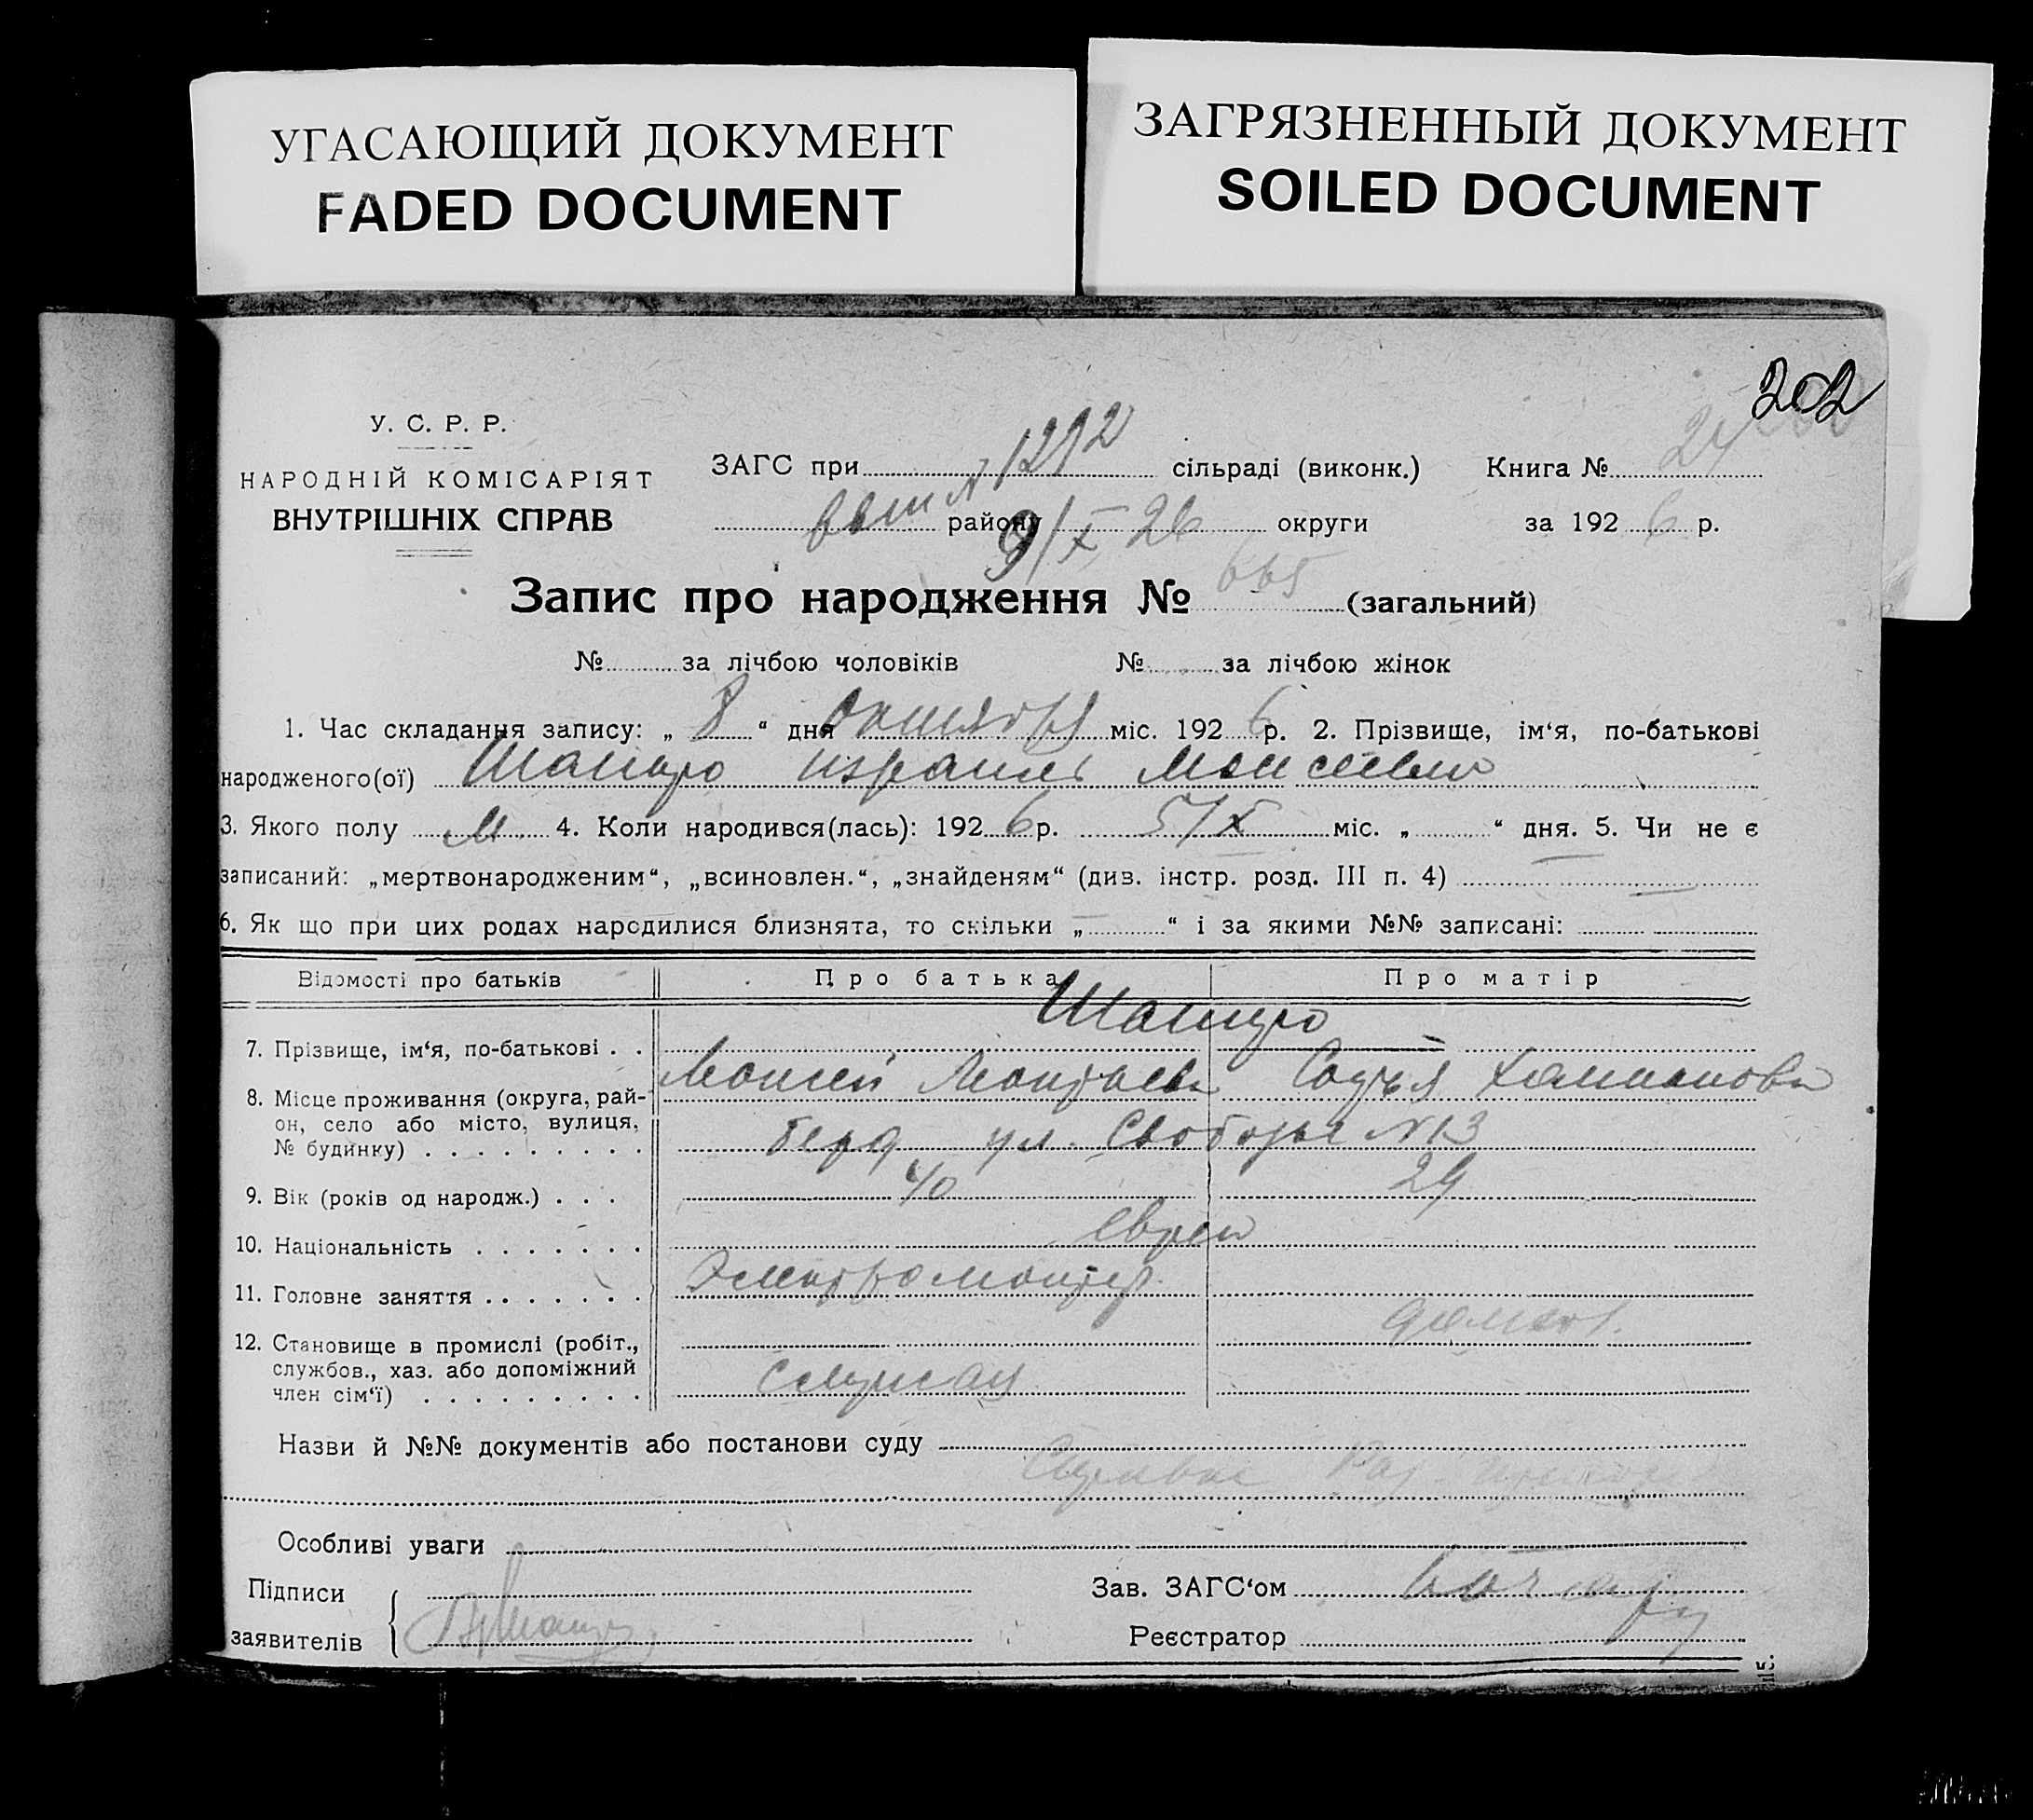 УГАСАЮЩИЙ ДОКУМЕНТ
FADED DOCUMENT
ЗАГРЯЗНЕННЫЙ ДОКУМЕНТ
SOILED DOCUMENT
202
У. С. Р. Р.
НАРОДНІЙ КОМІСАРІЯТ
ВНУТРІШНІХ СПРАВ
ЗАГС при N 1292 сільраді (виконк.) Книга № 24
району 9/X 26 округи за 1926 р.
Запис про народження № 665 (загальний)
№ за лічбою чоловіків № за лічбою жінок
1. Час складання запису: „ 8 “ дня Октября міс. 1926 р. 2. Прізвище, ім‘я, по-батькові
народженого(ої) Шапиро Израиль Моисеевич
3. Якого полу М. 4. Коли народився(лась): 1926 р. 5/X міс. „ “ дня. 5. Чи не є
записаний: „мертвонародженим“, „всиновлен.“, „знайденям“ (див. інстр. розд. III п. 4)
6. Як що при цих родах народилися близнята, то скільки „ – “ і за якими №№ записані:
Відомості про батьків Про батька Про матір
Шапиро
7. Прізвище, ім‘я, по-батькові . .
Моисей Софья
8. Місце проживання (округа, рай-
он, село або місто, вулиця,
№ будинку) . . . . . . . . .
Берд ул. Свободы N 13
9. Вік (років од народж.) . . . 40 29
10. Національність . . . . . . . евреи
11. Головне заняття . . . . . . . Электромонтер
12. Становище в промислі (робіт.,
службов., хаз. або допоміжний
член сім‘ї) . . . . . . . . .
домохоз.
служащ
Назви й №№ документів або постанови суду
Особливі уваги
Підписи
заявителів
Зав. ЗАГС‘ом
Реєстратор